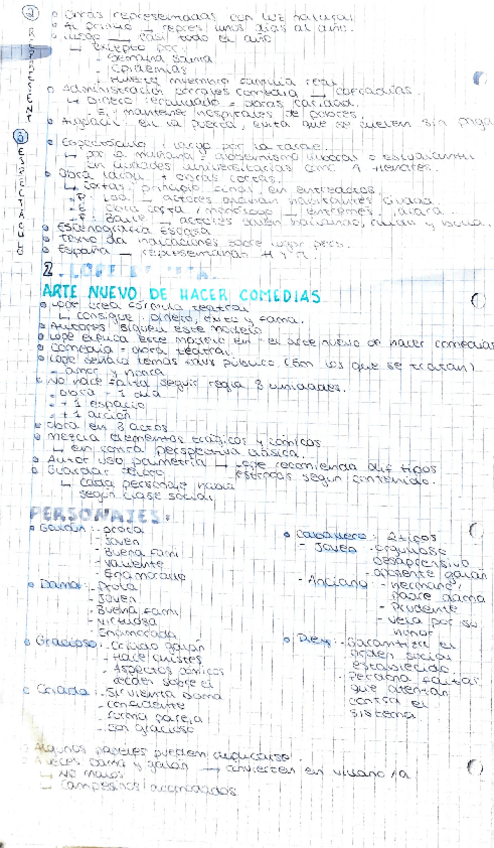 Obras representadas con luz natural
Al princ. → repres. unos días al año.
luego → casi todo el año
↳ excepto por:
- Semana Santa
- Epidemias
- muerte miembro familia real
Administración corrales comedia → cofradías.
↳ Dinero recaudado = obras caridad.
mantener hospitales de pobres.
Alguacil: en la puerta, evita que se cuelen sin pagar
Espectáculo: largo por la tarde.
↳ por la mañana =
en ciudades universitarias
Obra larga + obras cortas.
↳ cortas: principio, final, en entreactos
Loa → actores
Obra corta / monólogo → entremés, jácara
Baile:
Escenografía escasa
Texto da indicaciones sobre lugar
España → representaban H y M.
2.
ARTE NUEVO DE HACER COMEDIAS
Lope crea fórmula teatral
↳ consigue: dinero, éxito y fama.
Autores siguen este modelo
Lope explica este modelo en: el arte nuevo de hacer comedias
Comedia = obra teatral
Lope señala temas + público (son los que se tratan)
- amor y honra
No hace falta seguir regla 3 unidades.
- obra + 1 día
- + 1 espacio
- + 1 acción
Obra en 3 actos
Mezcla elementos trágicos y cómicos
↳ en contra perspectiva clásica.
Autor usa polimetría → Lope recomienda dif. tipos
estrofas según contenido.
Guardar decoro
↳ cada personaje habla
según clase social
PERSONAJES:
Galán: - prota
- Joven
- Buena fami
- valiente
- Enamorado
Dama: - Prota
- Joven
- Buena fami
- virtuosa
- Enamorada
Gracioso: - criado galán
- Hace chistes
- Aspectos cómicos
recaen sobre él
Criada: - Sirvienta dama
- confidente
- forma pareja
con gracioso
Caballero: 2 tipos
- Joven - orgulloso
desaprensivo
- oponente galán
- Anciano: - hermano,
padre dama
- Prudente
- vela por su
honor
Rey: - Garantiza el
orden social
establecido
- Perdona faltas
que atentan
contra el
sistema
Algunos papeles pueden duplicarse.
A veces dama y galán → convierten en villano/a
↳ No malos
↳ Campesinos acomodados